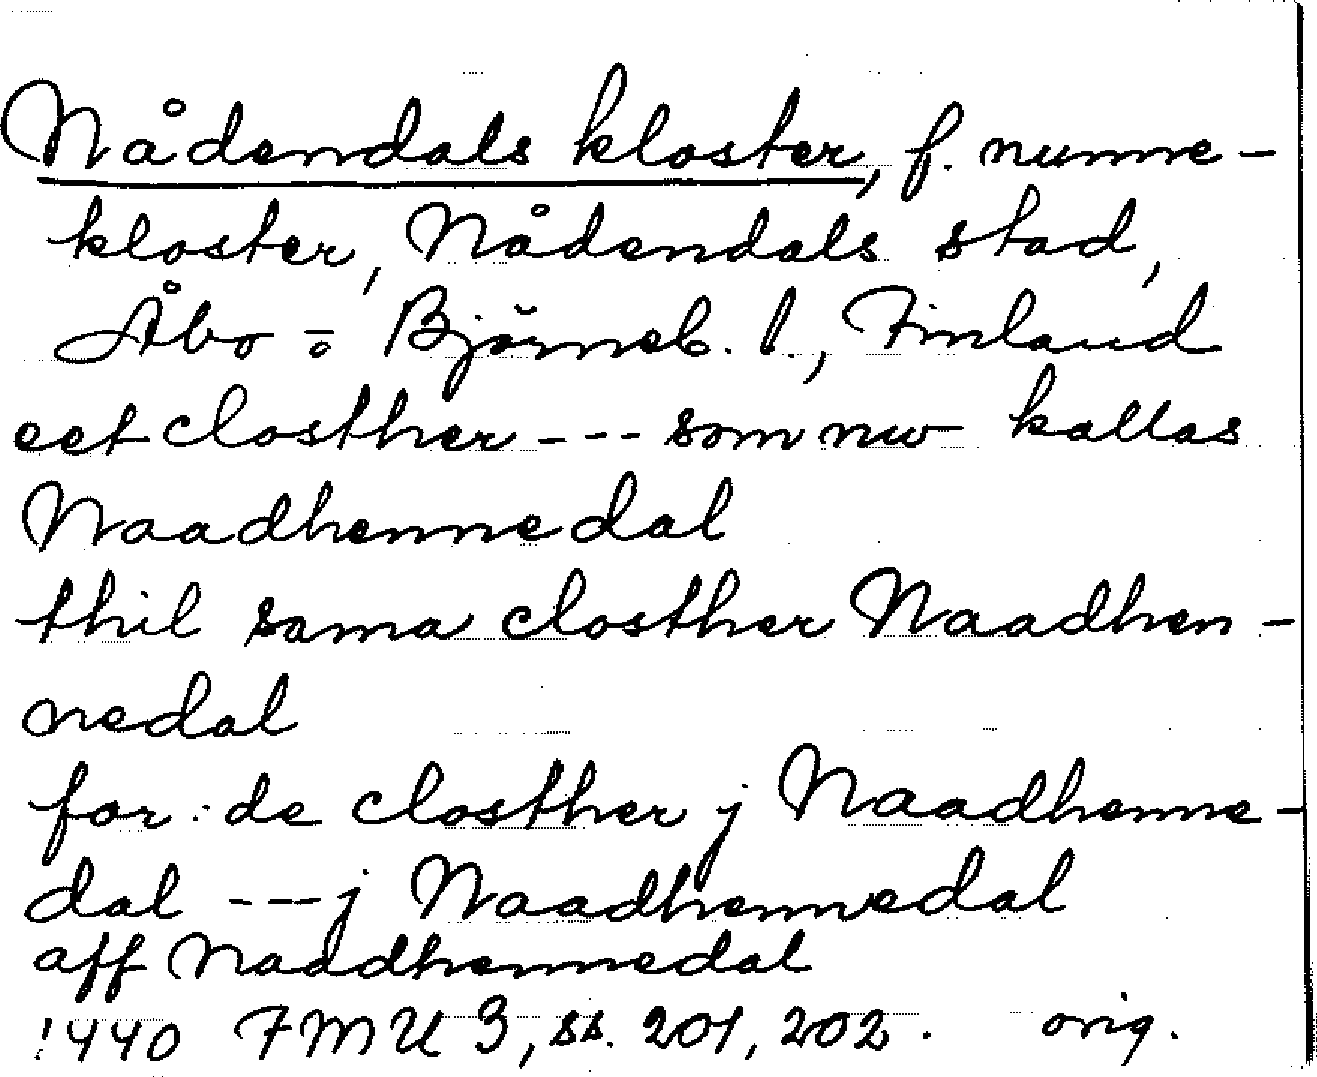 Nådendals kloster, f. nunne-
kloster, Nådendals stad,
Åbo = Björneb. l., Finland
eet closther --- som nw kallas
Naadhennedal
thil sama closther Naadhen-
nedal
for: de closther j Naadhenne-
dal --- j Naadhennedal
aff Naadhennedal
1440 FMU 3, ss. 201, 202. orig.